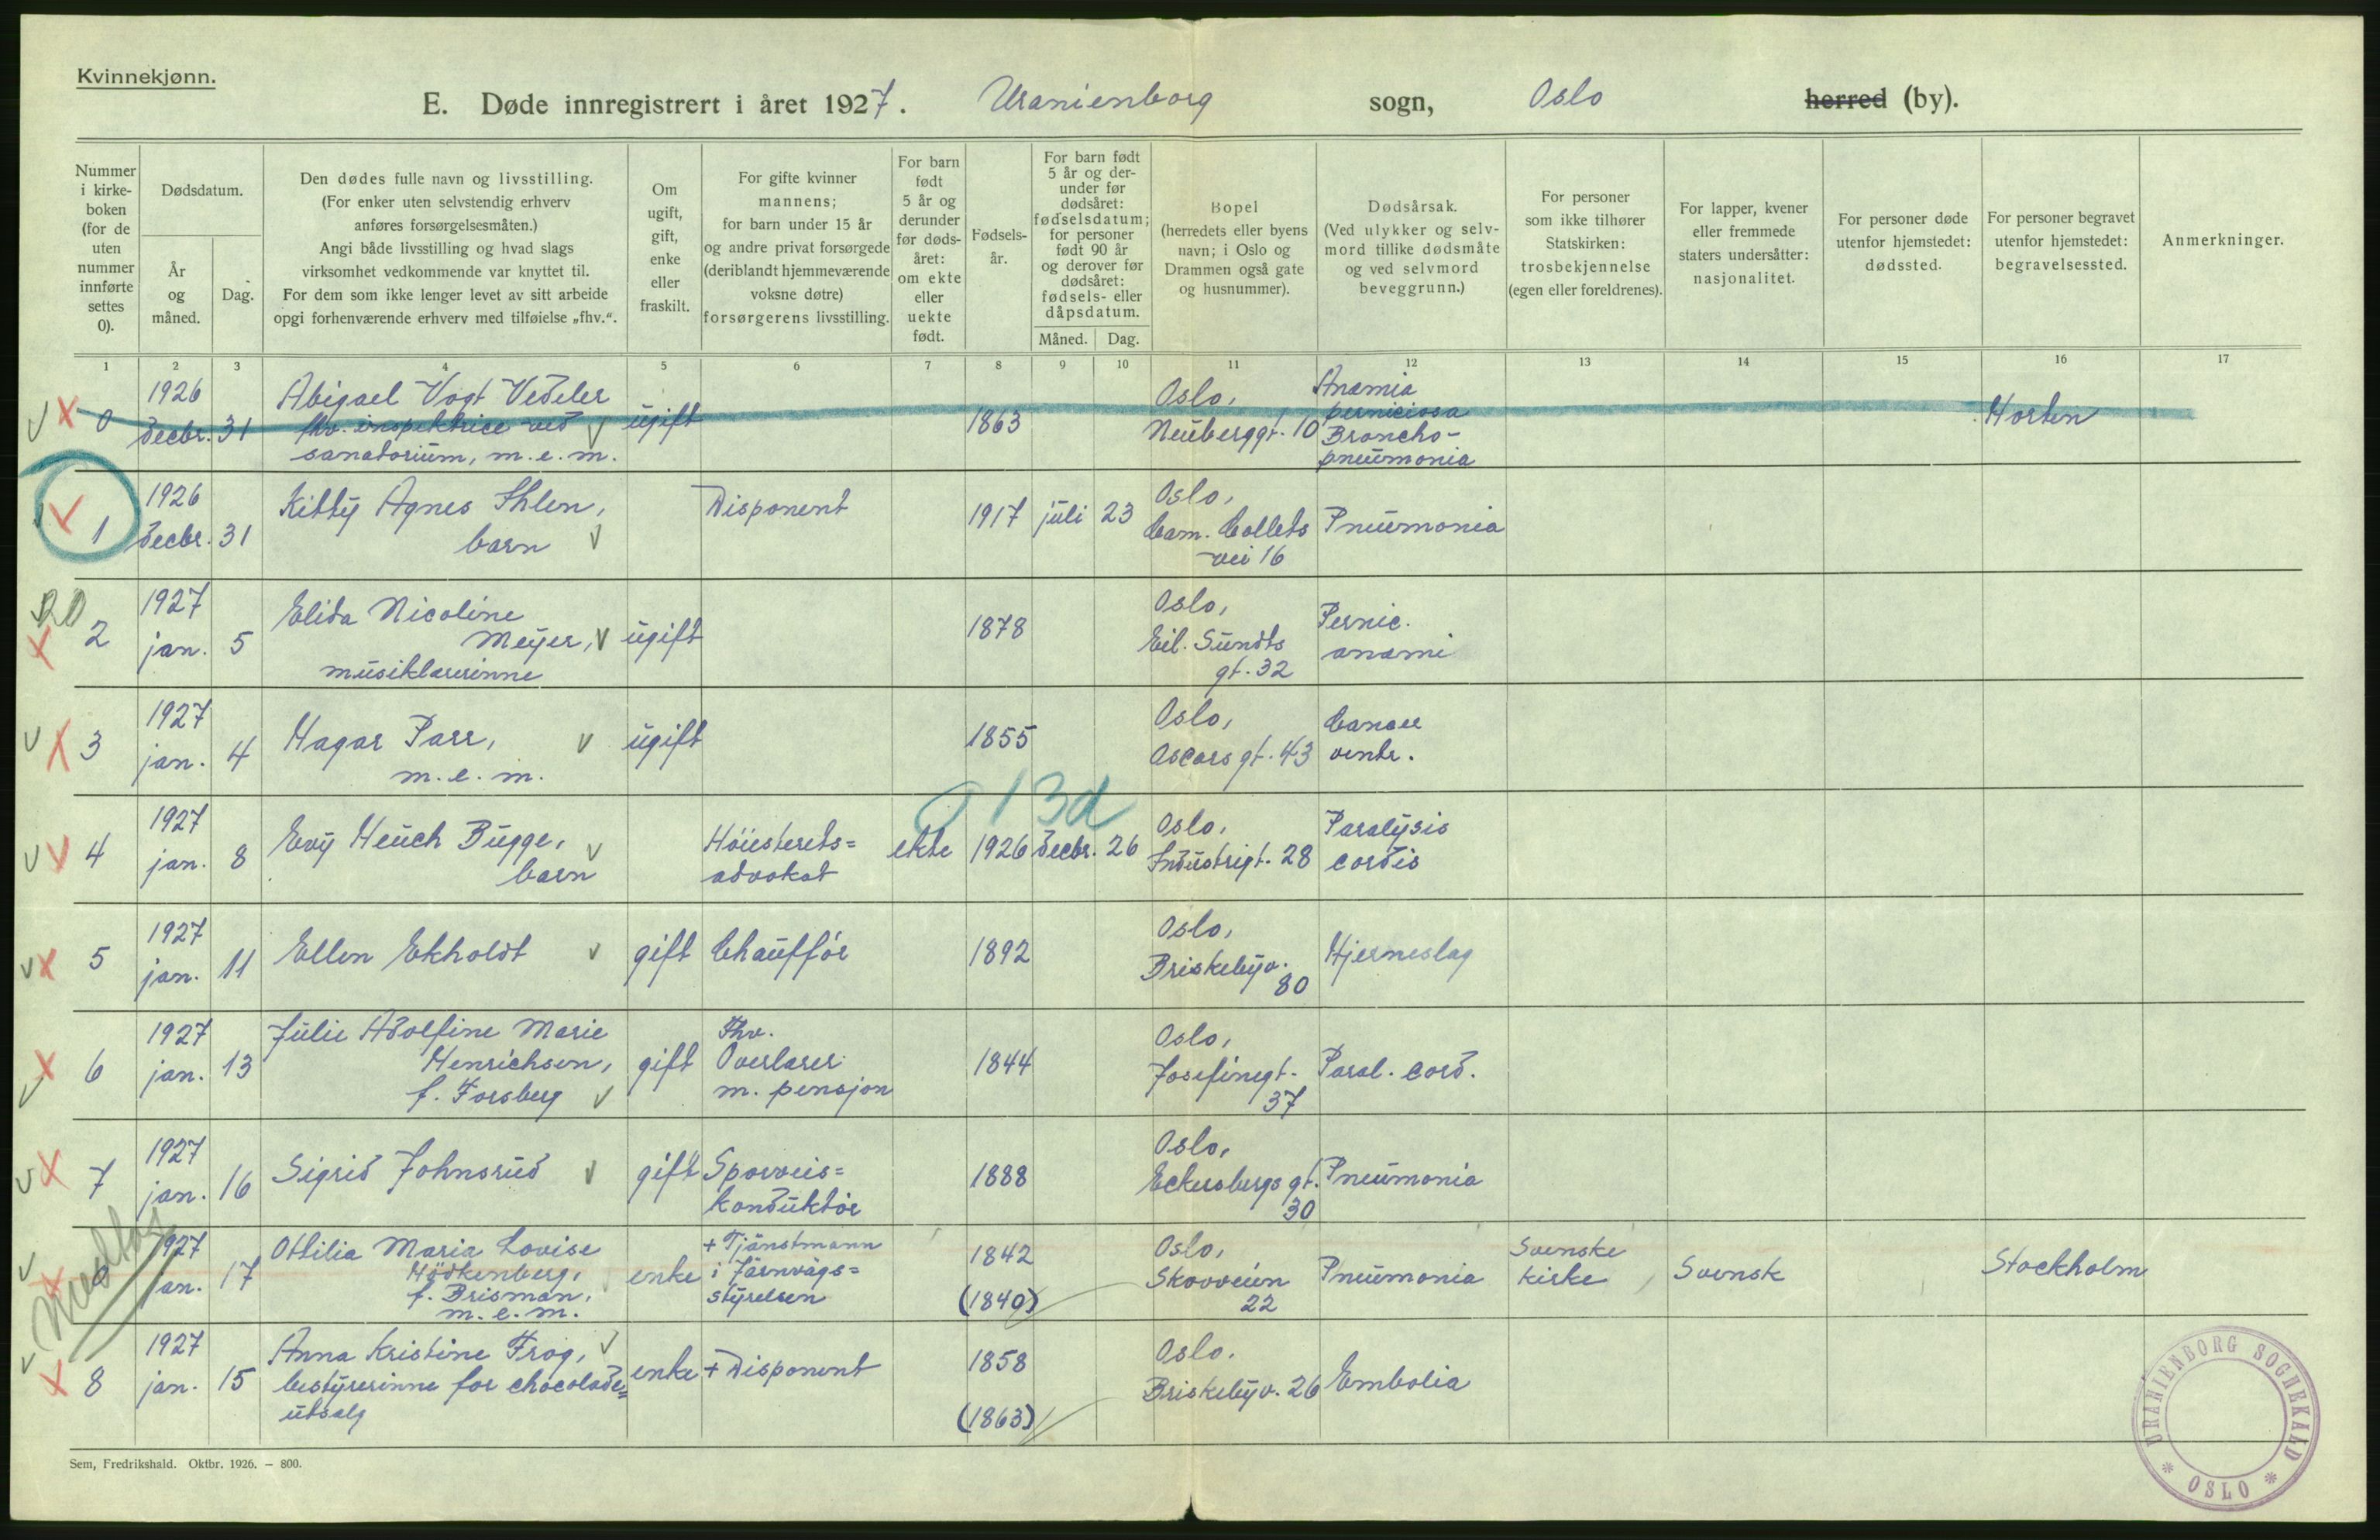 Kvinnekjønn.
E. Døde innregistrert i året 1927. Uranienborg sogn, Oslo herred (by).
Nummer
i kirke-
boken
(for de
uten
nummer
innførte
settes
0).
Dødsdatum.
År
og
måned.
Dag.
Den dødes fulle navn og livsstilling.
(For enker uten selvstendig erhverv
anføres forsørgelsesmåten.)
Angi både livsstilling og hvad slags
virksomhet vedkommende var knyttet til.
For dem som ikke lenger levet av sitt arbeide
opgi forhenværende erhverv med tilføielse „fhv.“.
Om
ugift,
gift,
enke
eller
fraskilt.
For gifte kvinner
mannens;
for barn under 15 år
og andre privat forsørgede
(deriblandt hjemmeværende
voksne døtre)
forsørgerens livsstilling.
For barn
født
5 år og
derunder
før døds-
året:
om ekte
eller
uekte
født.
Fødsels-
år.
For barn født
5 år og der-
under før
dødsåret:
fødselsdatum;
for personer
født 90 år
og derover før
dødsåret:
fødsels- eller
dåpsdatum.
Måned. Dag.
Bopel
(herredets eller byens
navn; i Oslo og
Drammen også gate
og husnummer).
Dødsårsak.
(Ved ulykker og selv-
mord tillike dødsmåte
og ved selvmord
beveggrunn.)
For personer
som ikke tilhører
Statskirken:
trosbekjennelse
(egen eller foreldrenes).
For lapper, kvener
eller fremmede
staters undersåtter:
nasjonalitet.
For personer døde
utenfor hjemstedet:
dødssted.
For personer begravet
utenfor hjemstedet:
begravelsessted.
Anmerkninger.
1 2 3 4 5 6 7 8 9 10 11 12 13 14 15 16 17
0
1926
decbr. 31
Abigael Vogt Vedeler
fhv. inspektrice ved
sanatorium, m.e.m.
ugift
1863
Oslo,
Neuberggt. 10
Anæmia
perniciosa
Broncho-
pneumonia
Horten
1
1926
decbr. 31
Kitty Agnes Ihlen,
barn
Disponent
1917 juli 23
Oslo,
Cam. Colletts
vei 16
Pneumonia
2
1927
jan. 5
Elida Nicoline
Meyer,
musiklærerinne
ugift
1878
Oslo,
Eil. Sundts
gt. 32
Pernic.
anæmi
3
1927
jan. 4
Hagar Parr,
m.e.m.
ugift
1855
Oslo,
Oscars gt. 43
Cancer
ventr.
4
1927
jan. 8
Evy Heuch Bugge,
barn
Höiesterets=
advokat
ekte
1926 decbr. 26
13d
Oslo,
Industrigt. 28
Paralysis
cordis
5
1927
jan. 11
Ellen Ekholdt
gift
Chauffør
1892
Oslo,
Briskebyv.
80
Hjerneslag
6
1927
jan. 13
Julie Adolfine Marie
Henrichsen,
f. Forsberg
gift
Fhv.
Overlærer
m. pensjon
1844
Oslo,
Josefinegt.
37
Paral. cord.
7
1927
jan. 16
Sigrid Johnsrud
gift
Sporveis=
konduktør
1888
Oslo,
Eckersbergs gt.
30
Pneumonia
0
1927
jan. 17
Ottilia Maria Lovise
Hödkenberg,
f. Brisman,
m.e.m.
enke
+ Tjänstmann
i Järnvägs=
styrelsen
1842
(1840)
Oslo,
Skovveien
22
Pneumonia
Svenske
kirke
Svensk
Stockholm
8
1927
jan. 15
Anna Kristine Frog,
bestyrerinne for chocolade=
utsalg
enke
+ Disponent
1858
(1863)
Oslo.
Briskebyv. 26
Embolia
Sem, Fredrikshald. Oktbr. 1926. — 800.
URANIENBORG SOGNEKALD * OSLO *